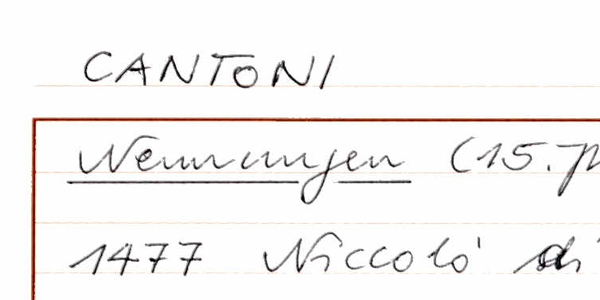 CANTONI
Nennungen (15.
1477 Niccolò di